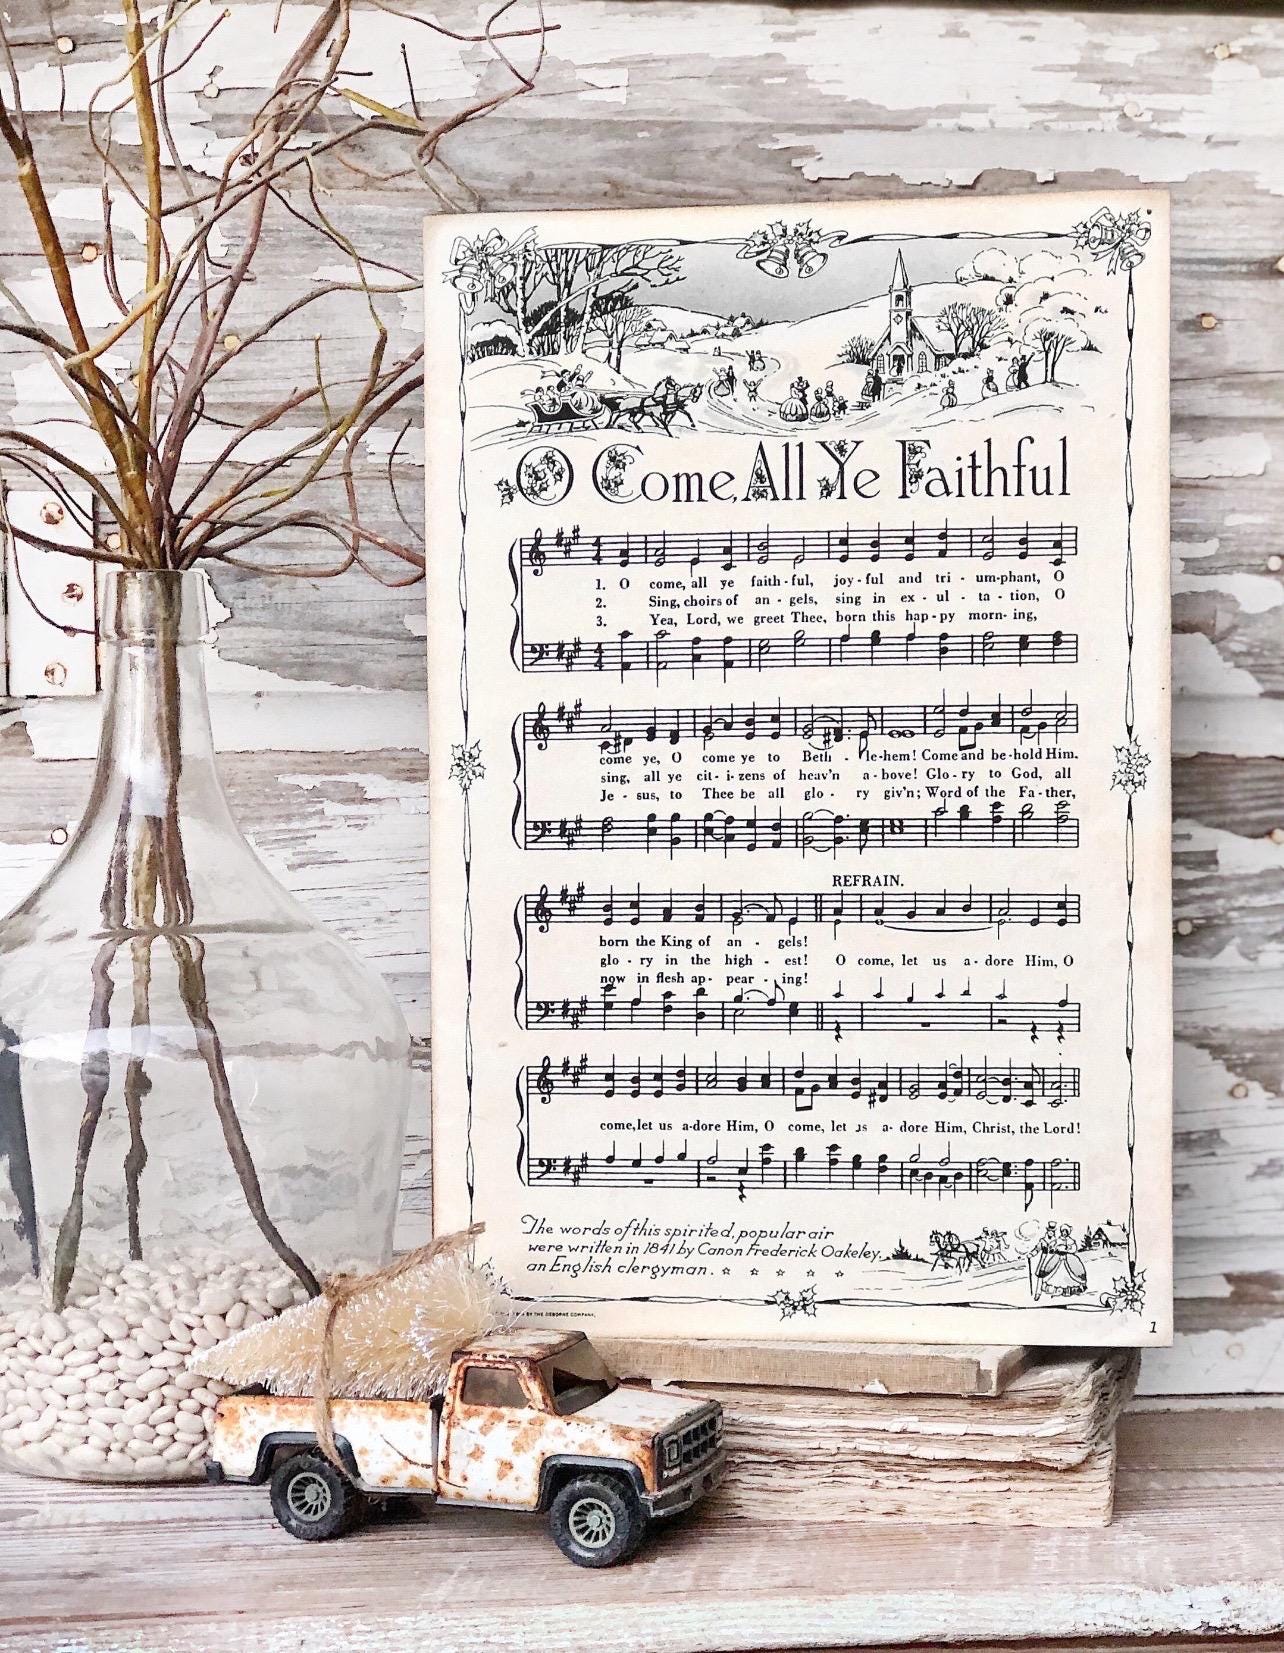 O Come, All Ye Faithful
1. O come, all ye faith-ful, joy-ful and tri-um-phant, O
2. Sing, choirs of an-gels, sing in ex-ul-ta-tion, O
3. Yea, Lord, we greet Thee, born this hap-py morn-ing,
come ye, O come ye to Beth-le-hem! Come and be-hold Him.
sing, all ye cit-i-zens of heav'n a-bove! Glo-ry to God, all
Je-sus, to Thee be all glo-ry giv'n; Word of the Fa-ther,
REFRAIN.
born the King of an-gels!
glo-ry in the high-est! O come, let us a-dore Him, O
now in flesh ap-pear-ing!
come, let us a-dore Him, O come, let us a-dore Him, Christ, the Lord!
The words of this spirited, popular air
were written in 1841 by Canon Frederick Oakeley,
an English clergyman.
BY THE OSBORNE COMPANY.
1